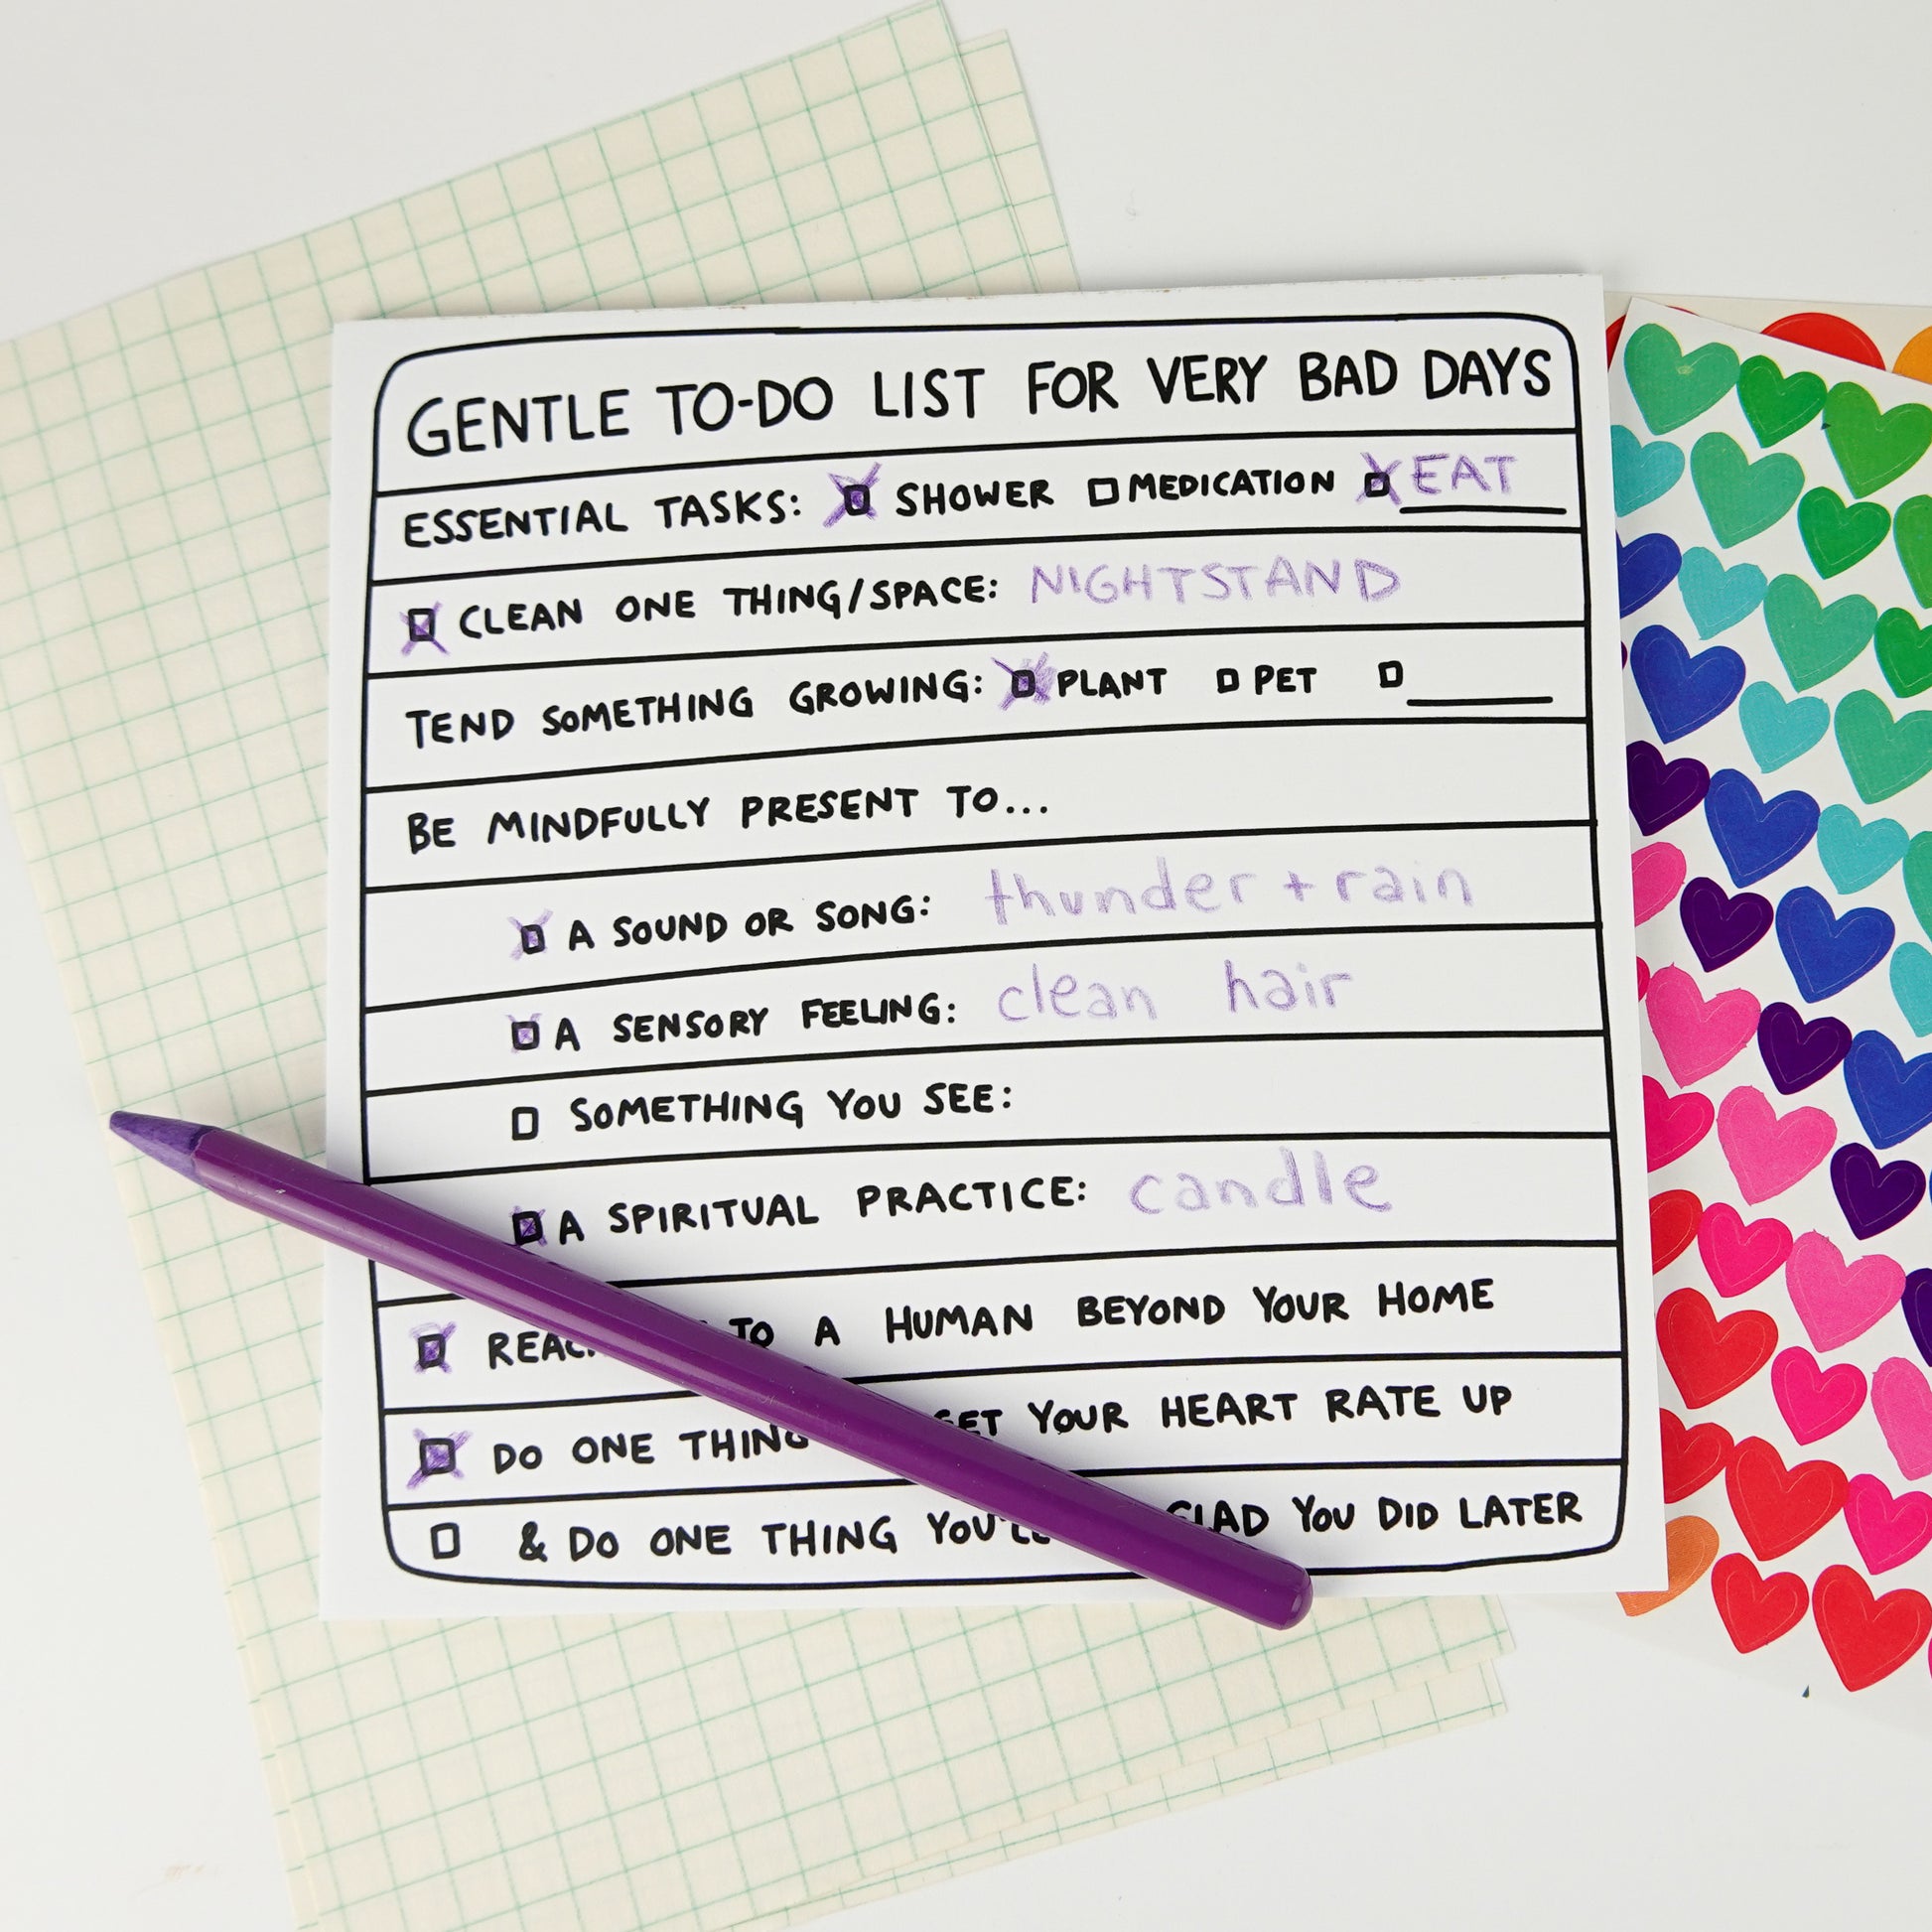 GENTLE TO-DO LIST FOR VERY BAD DAYS
ESSENTIAL TASKS: SHOWER MEDICATION EAT
CLEAN ONE THING/SPACE: NIGHTSTAND
TEND SOMETHING GROWING: PLANT PET
BE MINDFULLY PRESENT TO...
A SOUND OR SONG: thunder + rain
A SENSORY FEELING: clean hair
SOMETHING YOU SEE:
A SPIRITUAL PRACTICE: candle
TO A HUMAN BEYOND YOUR HOME
DO ONE THING YOUR HEART RATE UP
& DO ONE THING GLAD YOU DID LATER